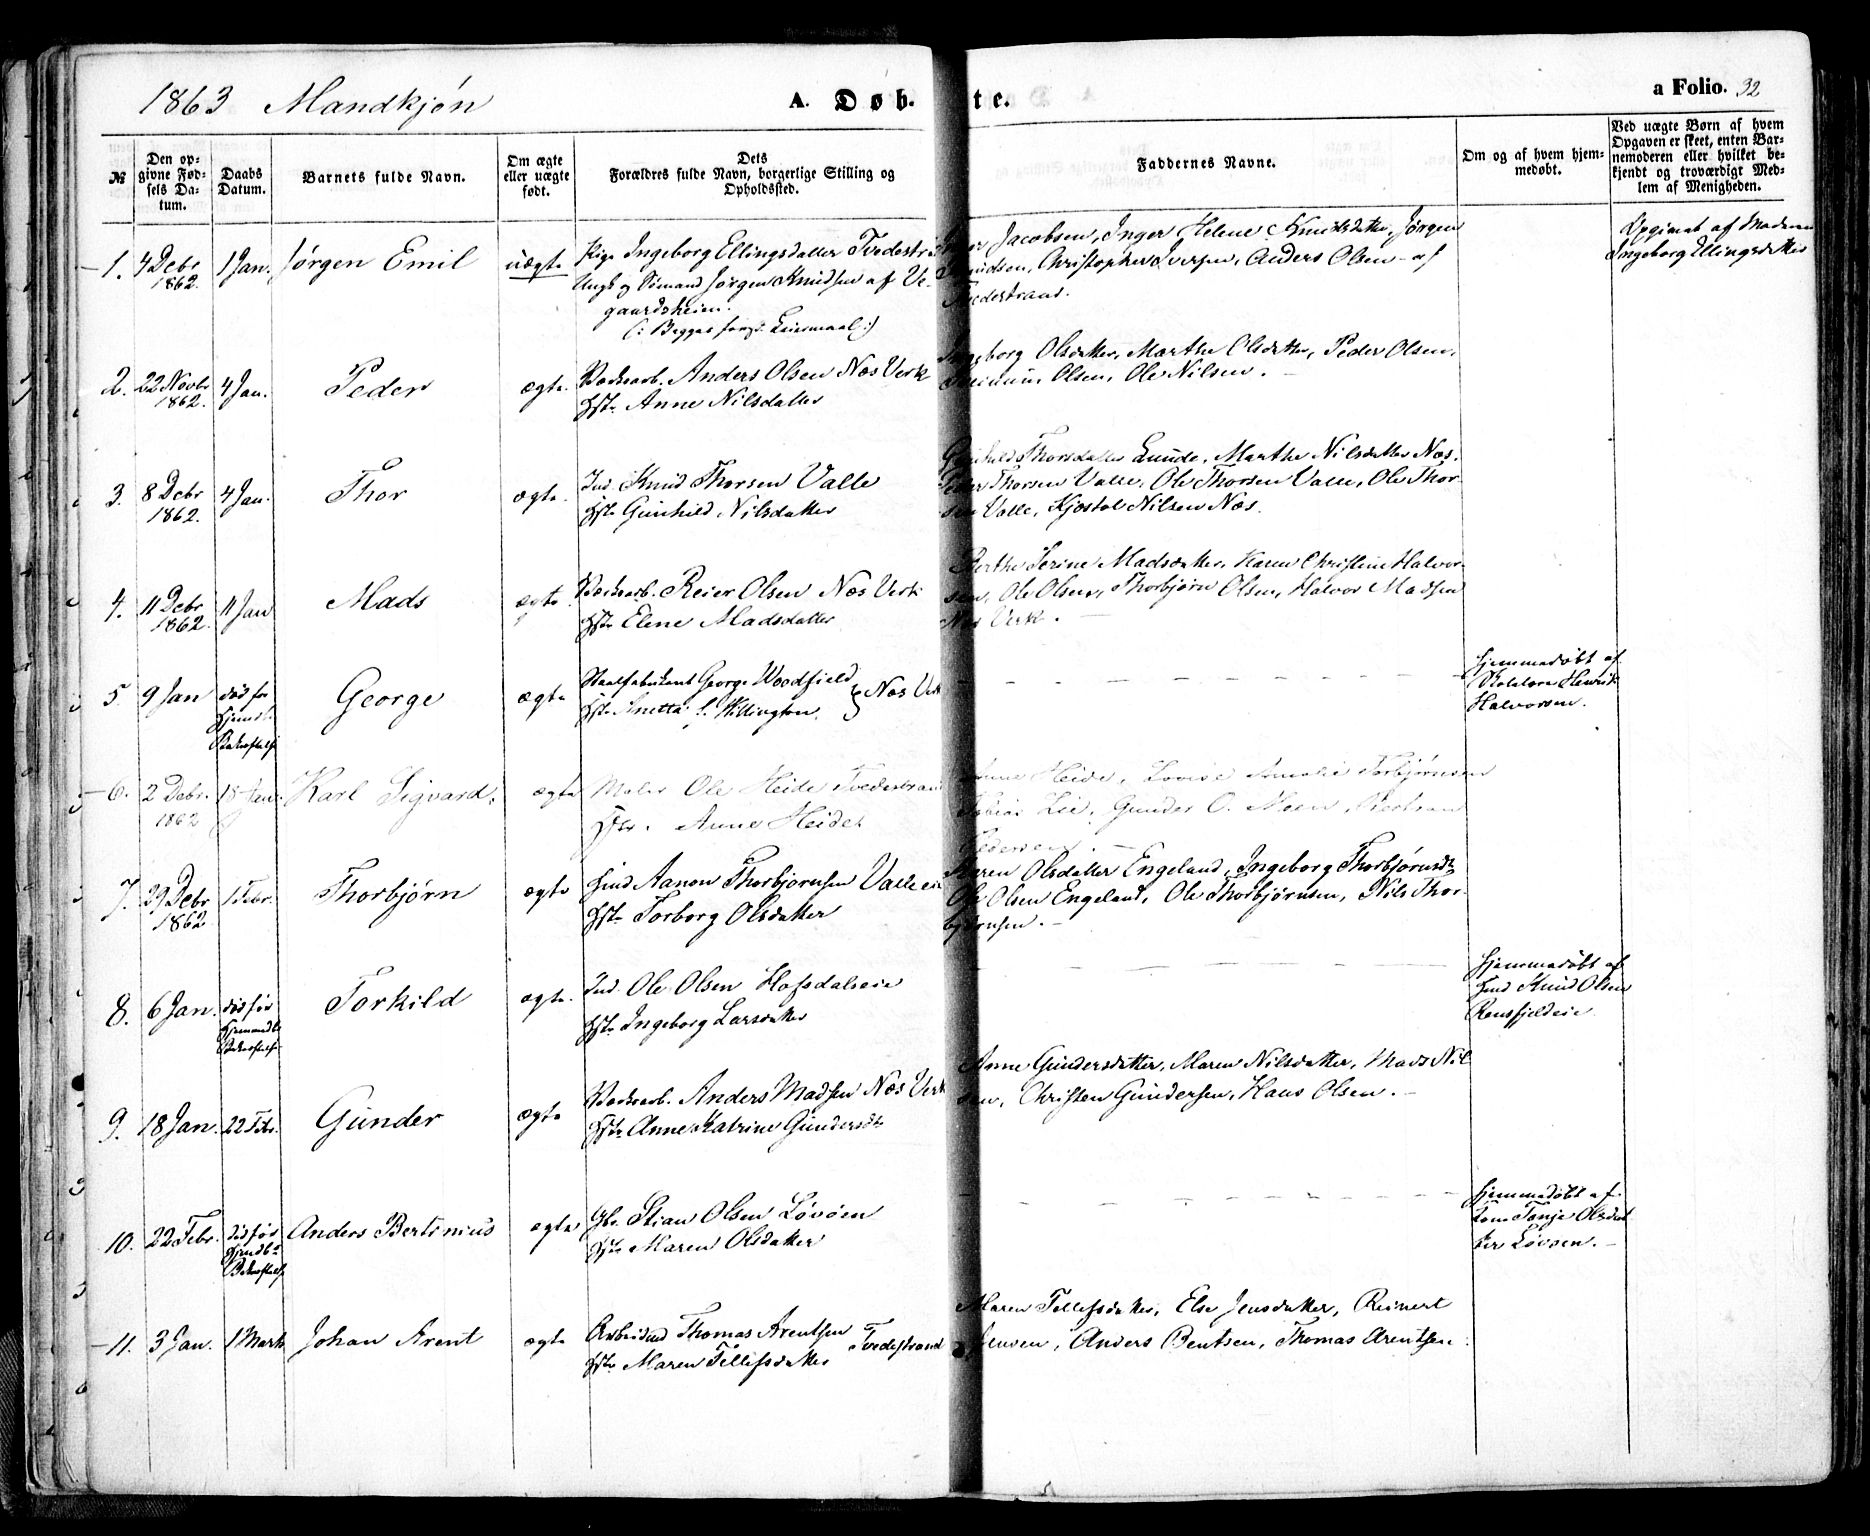 1863 Mandkjøn
A. Døb- te.
a Folio. 32
№
Den op-
givne Fød-
sels Da-
tum.
Daabs
Datum.
Barnets fulde Navn.
Om ægte
eller uægte
født.
Dets
Forældres fulde Navn, borgerlige Stilling og
Opholdssted.
Faddernes Navne.
Om og af hvem hjem-
medøbt.
Ved uægte Børn af hvem
Opgaven er skeet, enten Bar-
nemoderen eller hvilket be-
kjendt og troværdigt Med-
lem af Menigheden.
1. 4 Debr
1862. 1 Jan. Jørgen Emil uægte
Pige Ingeborg Ellingsdatter
Ungk og Sømand Jørgen Knudsen af Ve-
gaardsheien.
(: Begges første Leiermaal :)
Jacobsen, Inger Helene Knudsdatter, Jørgen
Christopher Iversen, Anders Olsen - af
Tvedestrand.
Opgivet af Moderen
Ingeborg Ellingsdatter
2. 22 Novbr
1862. 4 Jan. Peder ægte.
Anders Olsen Næs Verk
Hst. Anne Nilsdatter
Olsdatter, Marthe Olsdatter, Peder Olsen,
Olsen, Ole Nilsen. -
3. 8 Debr
1862. 4 Jan. Thor ægte.
Ind. Knud Thorsen Valle
Hst. Gunhild Nilsdatter
Thorsdatter Lunde, Marthe Nilsdatter Næs,
Thorsen Valle, Ole Thorsen Valle, Ole Thor-
sen Valle, Kjøstol Nilsen Næs.
4. 11 Debr
1862. 11 Jan Mads ægte
Reier Olsen Næs Verk
Hst. Elene Madsdatter
Berthe Serine Madsdatter, Karen Christine Halvor-
sen, Ole Olsen, Thorbjørn Olsen, Halvor Madsen
Næs Verk. -
5 9 Jan død før
Hjemd.
Bekræftelse George ægte
Staalfabrikant George Woodfield
Hst. } Næs Verk
Hjemmedøbt af
Henrik
Halvorsen.
6. 2 Debr.
1862 18 Jan. Karl Sigvard. ægte
Maler Ole Heide Tvedestrand
Hst. Anne Heide
Anne Heide, Lovise Amalie Torbjørnsen
Tobias Lie, Gunder O. Moen,
Pedersen. -
7. 29 Debr
1862 1 Febr. Thorbjørn ægte
Hmd Aanon Thorbjørnsen Valleeie
Hst. Torborg Olsdatter
Karen Olsdatter Engeland, Ingeborg Thorbjørnsdtr
Ole Olsen Engeland, Ole Thorbjørnsen, Nils Thor-
bjørnsen. -
8. 6 Jan. død før
Hjemmedb.
Bekræftelse Torkild ægte.
Ind. Ole Olsen Hofsdaleie
Hst. Ingeborg Larsdatter
Hjemmedøbt af
Hmd Knud Olsen
Rensfjeldeie
9. 18 Jan. 22 Febr. Gunder ægte
Anders Madsen Næs Verk
Hst. Anne Katrine Gundersdtr
Anne Gundersdatter, Maren Nilsdatter, Mads Nil-
sen, Christen Gundersen, Hans Olsen. -
10. 22 Febr. død før
Hjemdb.
Bekræftelse Anders Bertinius ægte
Gbr. Stian Olsen Løvøen
Hst. Maren Olsdatter
Hjemmedøbt af
Kone Tonje Olsdat-
ter Løvøen. -
11. 3 Jan. 1 Marts Johan Arent ægte
Arbeidsmd Thomas Arentsen
Hst. Maren Tellefsdatter Tvedestrand
Maren Tellefsdatter, Else Jensdatter, Reinert
Jensen, Anders Bentsen, Thomas Arentsen.